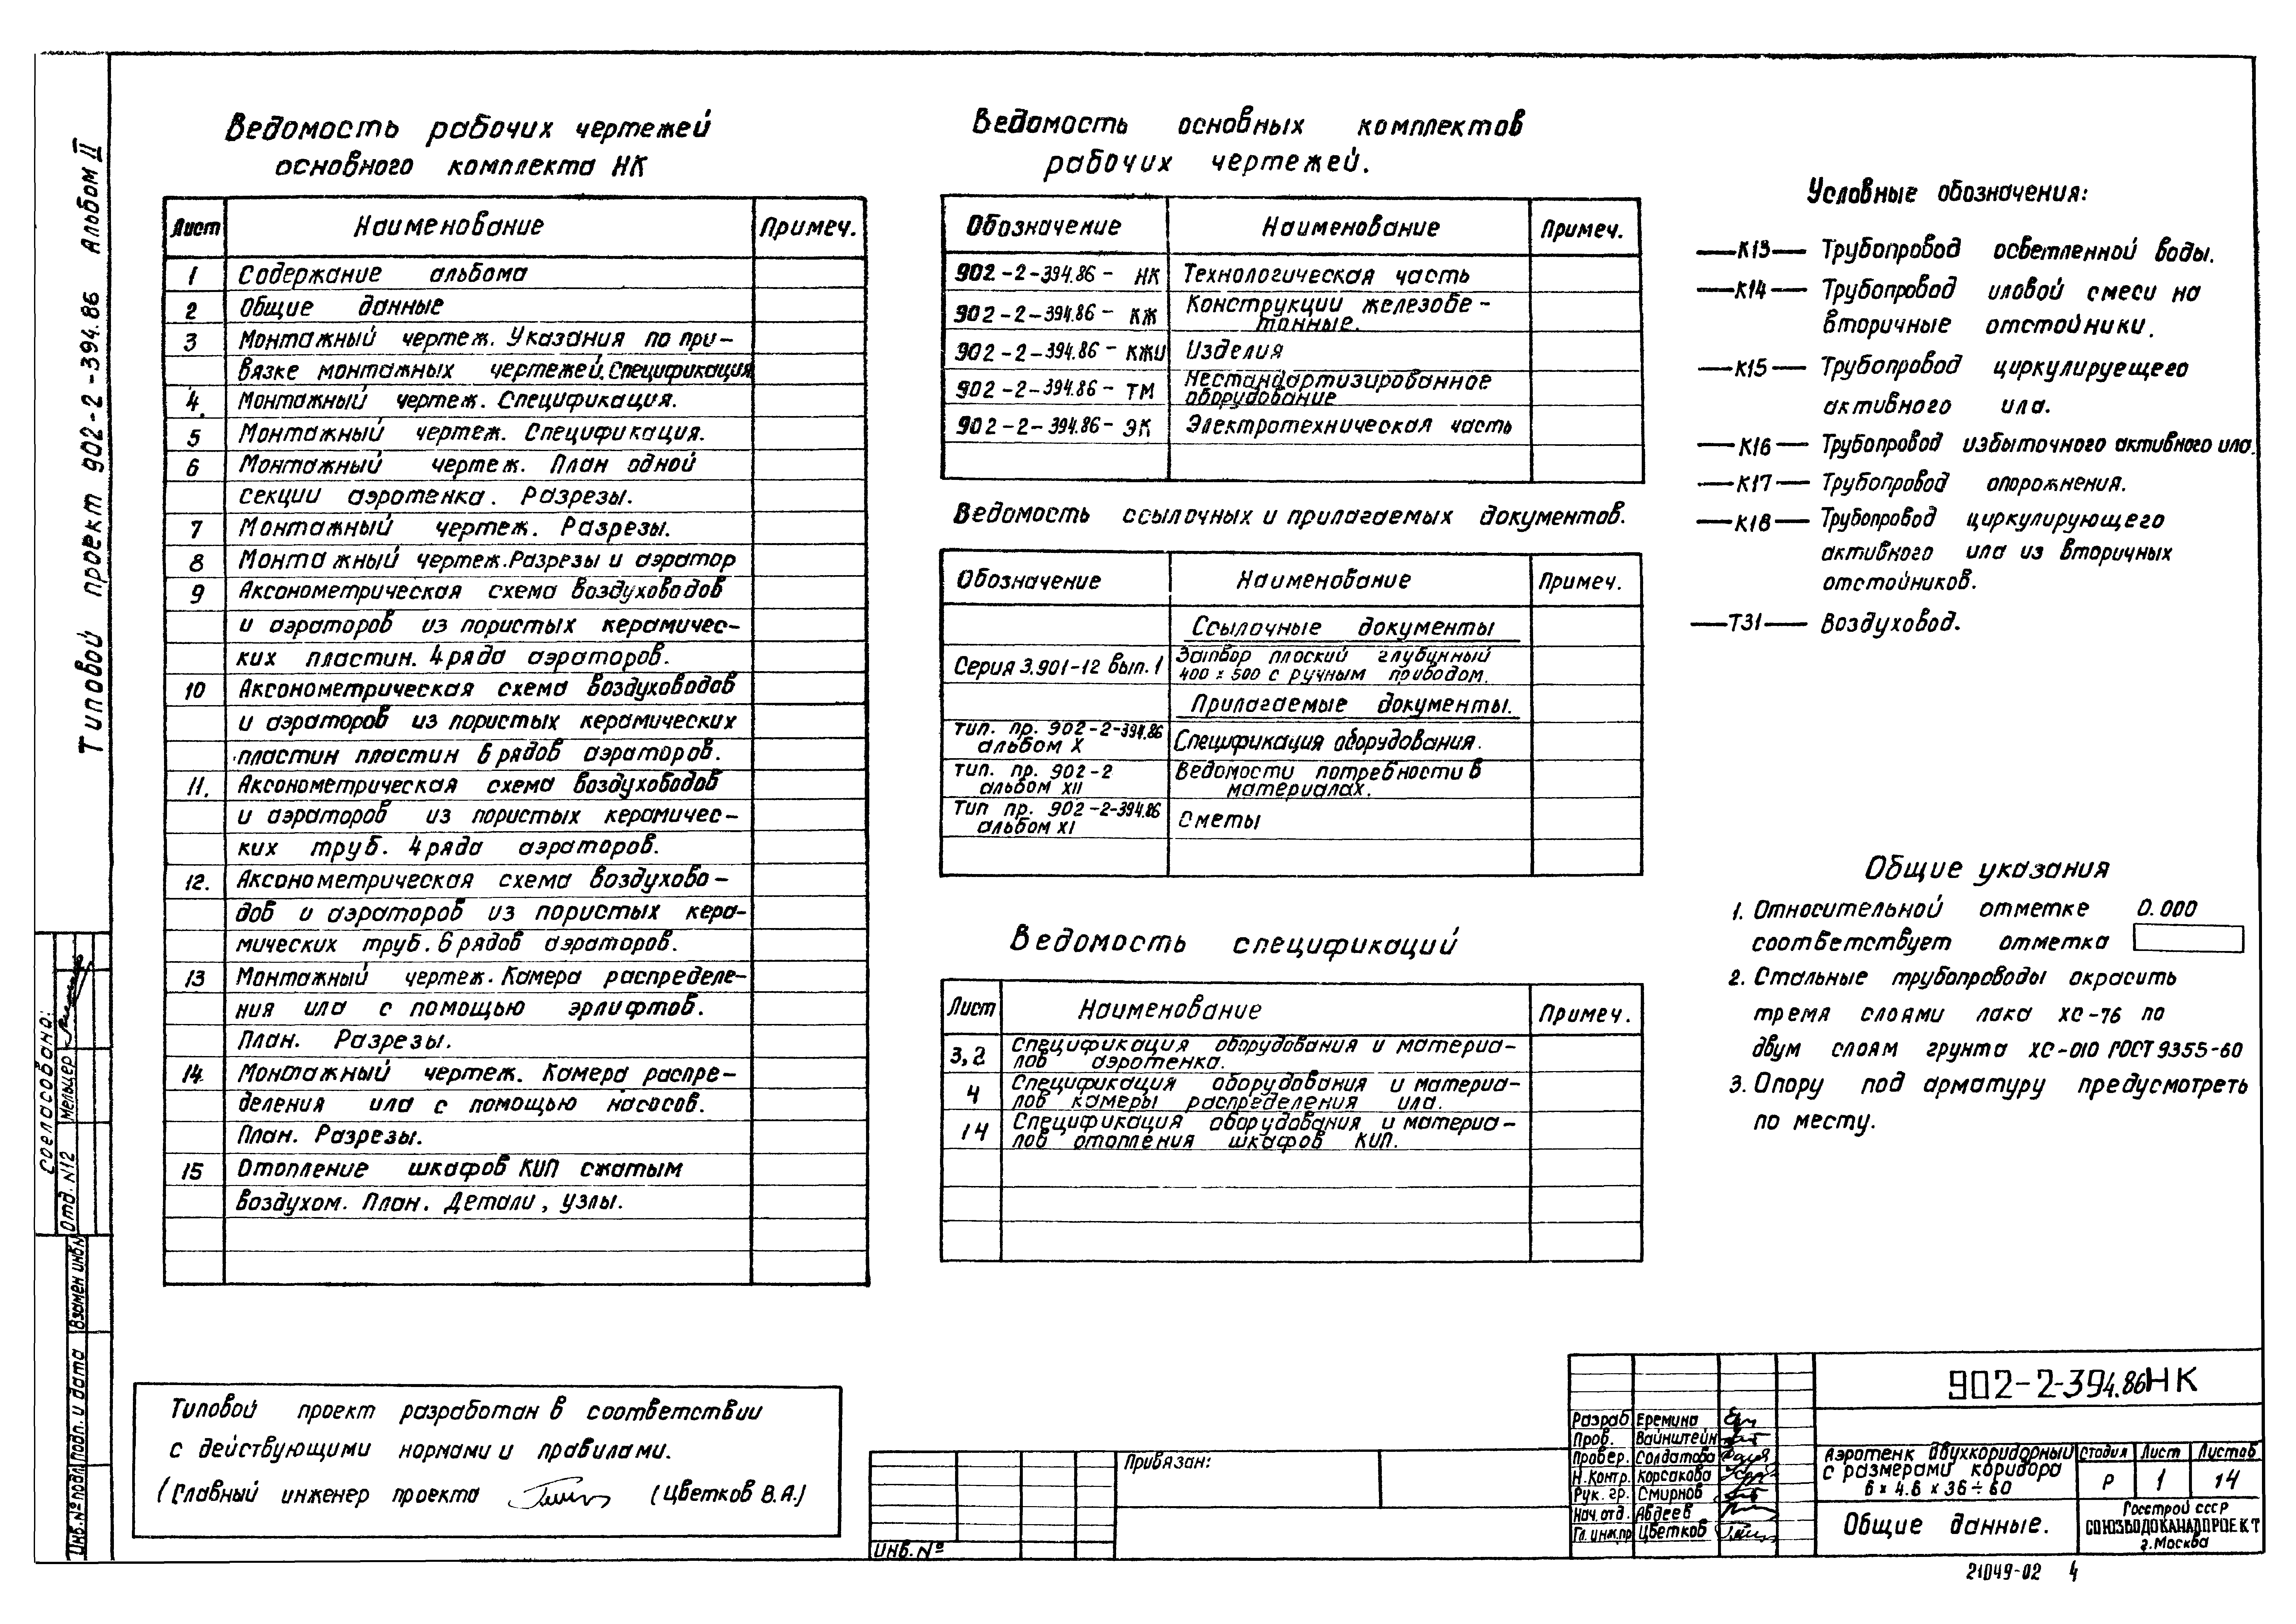 Типовой проект 902-2-394.86 Альбом II
Ведомость рабочих чертежей
основного комплекта НК
Лист Наименование Примеч.
1 Содержание альбома
2 Общие данные
3 Монтажный чертеж. Указания по при-
вязке монтажных чертежей. Спецификация
4. Монтажный чертеж. Спецификация.
5 Монтажный чертеж. Спецификация.
6 Монтажный чертеж. План одной
секции аэротенка. Разрезы.
7 Монтажный чертеж. Разрезы.
8 Монтажный чертеж. Разрезы и аэратор
9 Аксонометрическая схема воздуховодов
и аэраторов из пористых керамичес-
ких пластин. 4 ряда аэраторов.
10 Аксонометрическая схема воздуховодов
и аэраторов из пористых керамических
пластин пластин 6 рядов аэраторов.
11. Аксонометрическая схема воздуховодов
и аэраторов из пористых керамичес-
ких труб. 4 ряда аэраторов.
12. Аксонометрическая схема воздухово-
дов и аэраторов из пористых кера-
мических труб. 6 рядов аэраторов.
13 Монтажный чертеж. Камера распределе-
ния ила с помощью эрлифтов.
План. Разрезы.
14 Монтажный чертеж. Камера распре-
деления ила с помощью насосов.
План. Разрезы.
15 Отопление шкафов КИП сжатым
воздухом. План. Детали, узлы.
Ведомость основных комплектов
рабочих чертежей.
Обозначение Наименование Примеч.
902-2-394.86- НК Технологическая часть
902-2-394.86- КЖ Конструкции железобе-
тонные.
902-2-394.86- КЖИ Изделия
902-2-394.86- ТМ Нестандартизированное
оборудование
902-2-394.86- ЭК Электротехническая часть
Ведомость ссылочных и прилагаемых документов.
Обозначение Наименование Примеч.
Ссылочные документы
Серия 3.901-12 вып.1 Затвор плоский глубинный
400 х 500 с ручным приводом.
Прилагаемые документы.
тип. пр. 902-2-394.86
альбом X Спецификация оборудования.
тип. пр. 902-2
альбом XII Ведомости потребности в
материалах.
Тип пр. 902-2-394.86
альбом XI Сметы
Ведомость спецификаций
Лист Наименование Примеч.
3,2 Спецификация оборудования и материа-
лов аэротенка.
4 Спецификация оборудования и материа-
лов камеры распределения ила.
14 Спецификация оборудования и материа-
лов отопления шкафов КИП.
Условные обозначения:
—К13— Трубопровод осветленной воды.
—К14— Трубопровод иловой смеси на
вторичные отстойники.
—К15— Трубопровод циркулируещего
активного ила.
—К16— Трубопровод избыточного активного ила.
—К17— Трубопровод опорожнения.
—К18— Трубопровод циркулирующего
активного ила из вторичных
отстойников.
—Т31— Воздуховод.
Общие указания
1. Относительной отметке 0.000
соответствует отметка
2. Стальные трубопроводы окрасить
тремя слоями лака ХС-76 по
двум слоям грунта ХС-010 ГОСТ 9355-60
3. Опору под арматуру предусмотреть
по месту.
Типовой проект разработан в соответствии
с действующими нормами и правилами.
(Главный инженер проекта (Цветков В.А.)
Согласовано:
Отд. N12 Мельцер
Взамен инв.N
Подп. и дата
Инв.№ подл.
Привязан:
Инв.№
Разраб Еремина
Пров. Вайнштейн
Провер. Солдатова
Н.контр. Корсакова
Рук. гр. Смирнов
Нач. отд. Авдеев
Гл. инж.пр Цветков
902-2-394.86 НК
Аэротенк двухкоридорный
с размерами коридора
6 × 4.6 × 36 ÷ 60
Стадия Лист Листов
Р 1 14
Общие данные.
Госстрой СССР
СОЮЗВОДОКАНАЛПРОЕКТ
г.Москва
21049-02 4